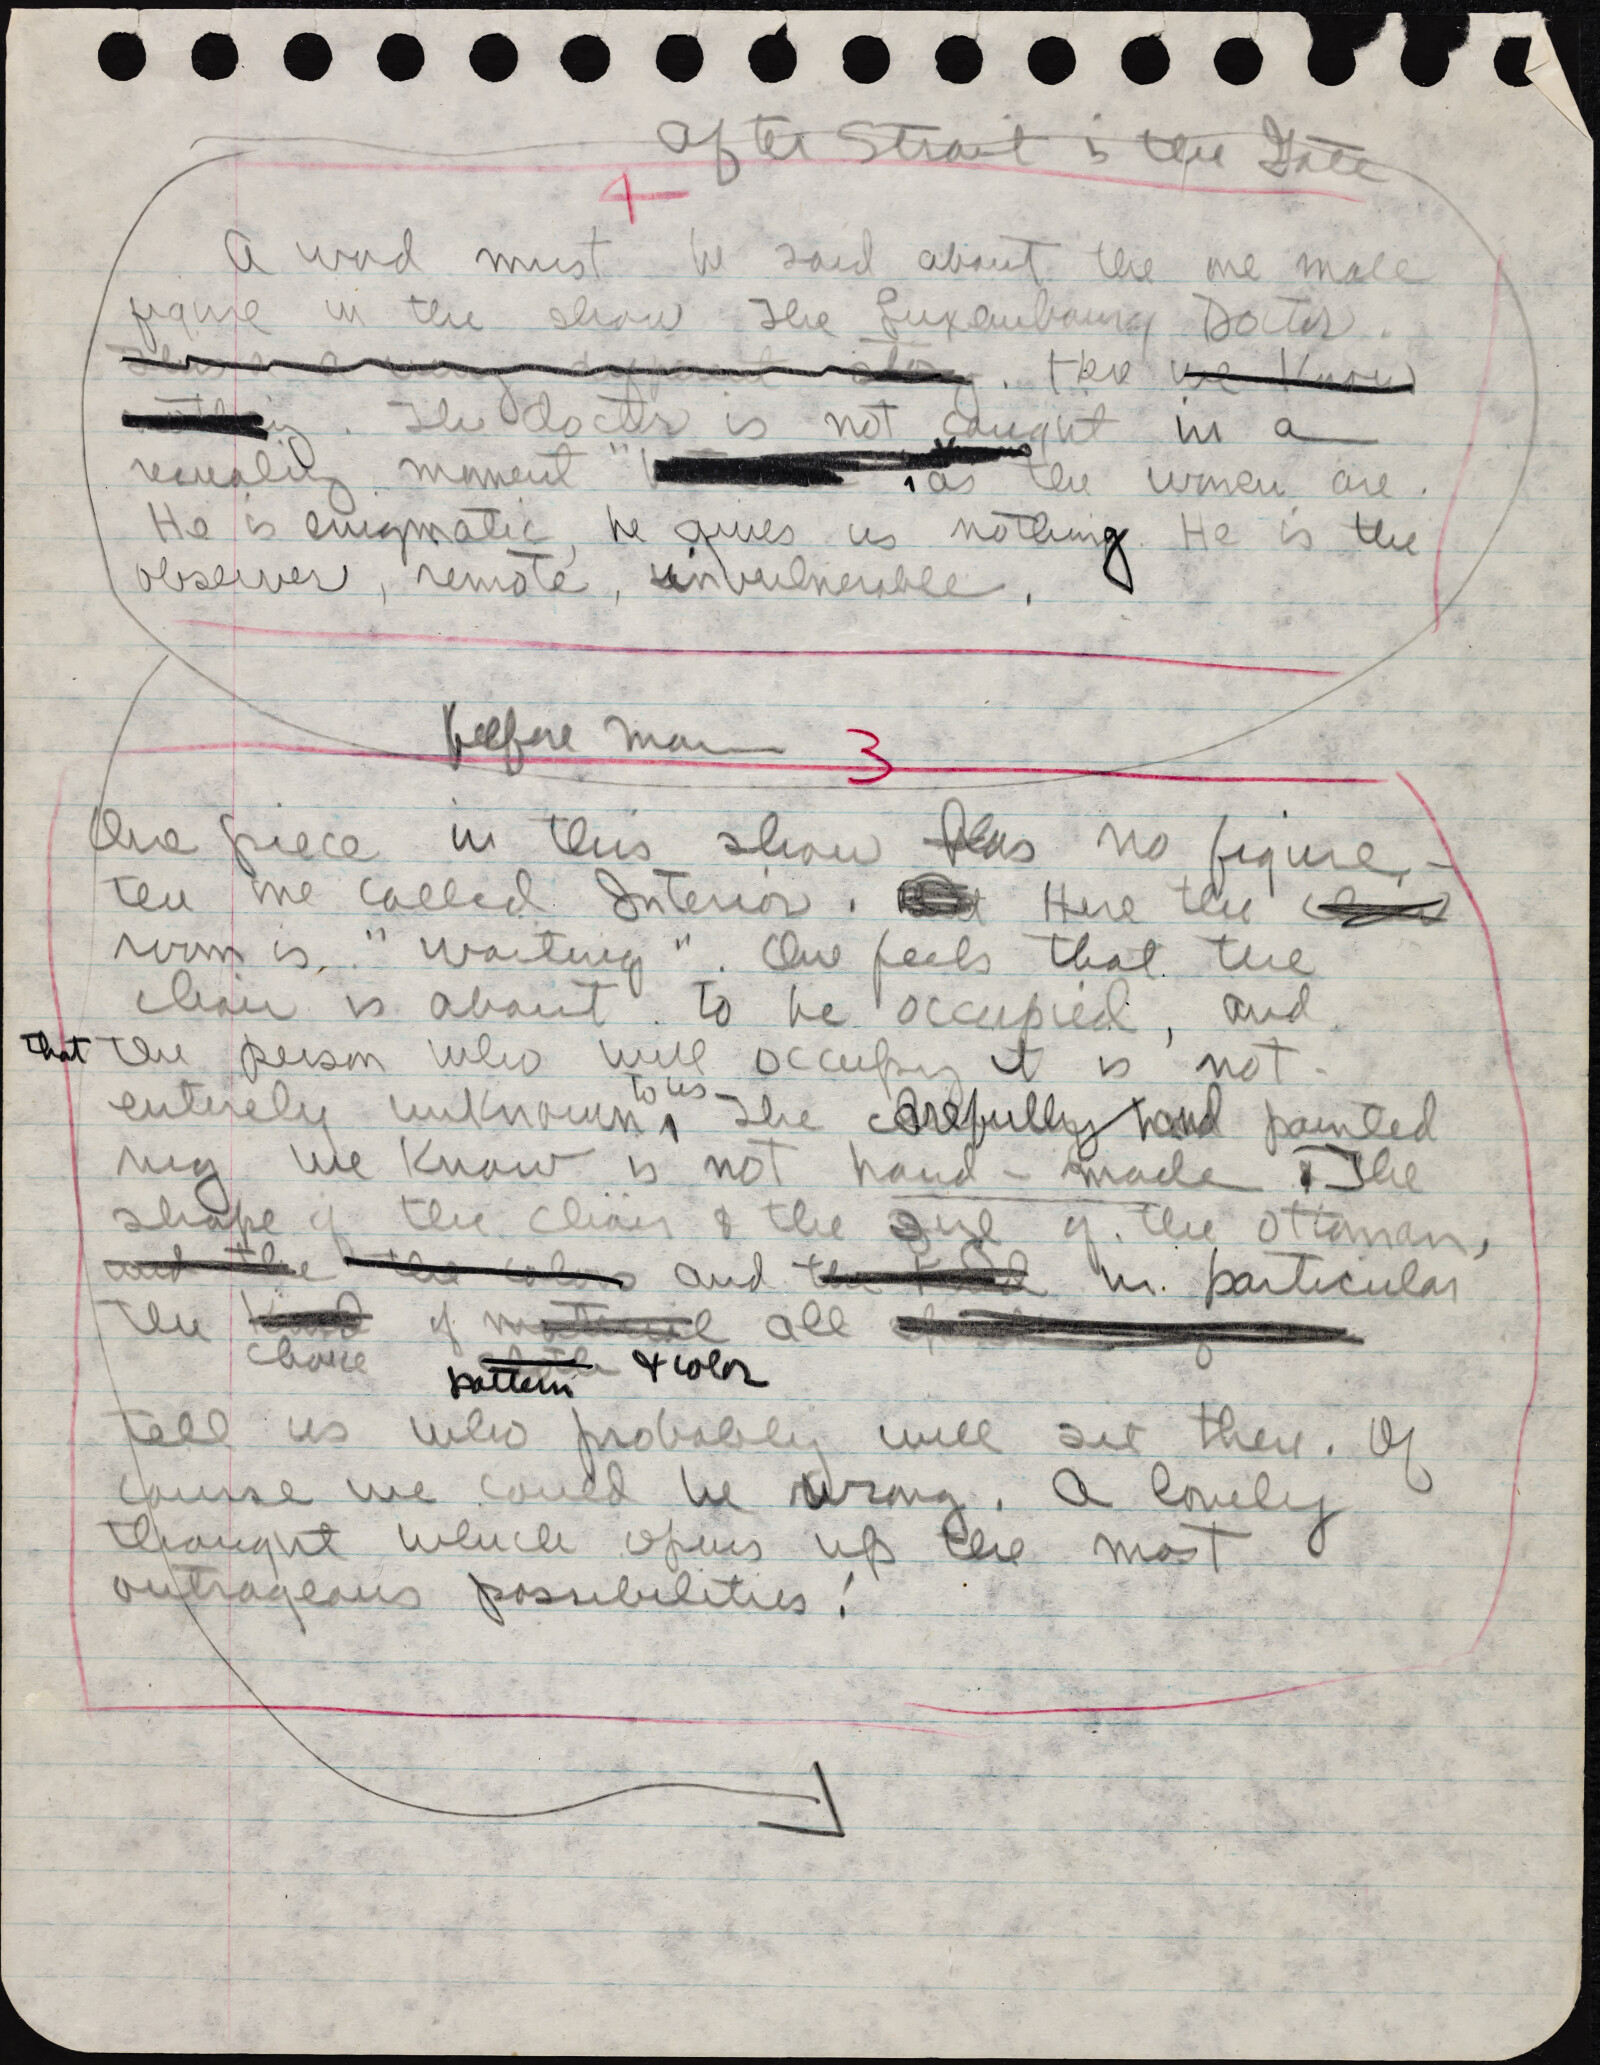 After Strait is the Gate
4
A word must be said about the one male
figure in the show The Luxembourg Doctor.
This is a very different story. Here we know
nothing. The doctor is not caught in a
revealing moment " as the women are.
He is enigmatic, he gives us nothing. He is the
observer, remote, invulnerable.
before man
3
One piece in this show has no figure, -
the one called Interior. But Here the chair
room is "waiting". One feels that the
chair is about to be occupied, and
that the person who will occupy it is not
entirely unknown to us. The carefully hand painted
rug we know is not hand-made. The
shape of the chair & the size of the ottoman,
and the the colors and the kind in particular
the kind of material all
choice pattern & color
tell us who probably will sit there. Of
course we could be wrong. A lovely
thought which opens up the most
outrageous possibilities!